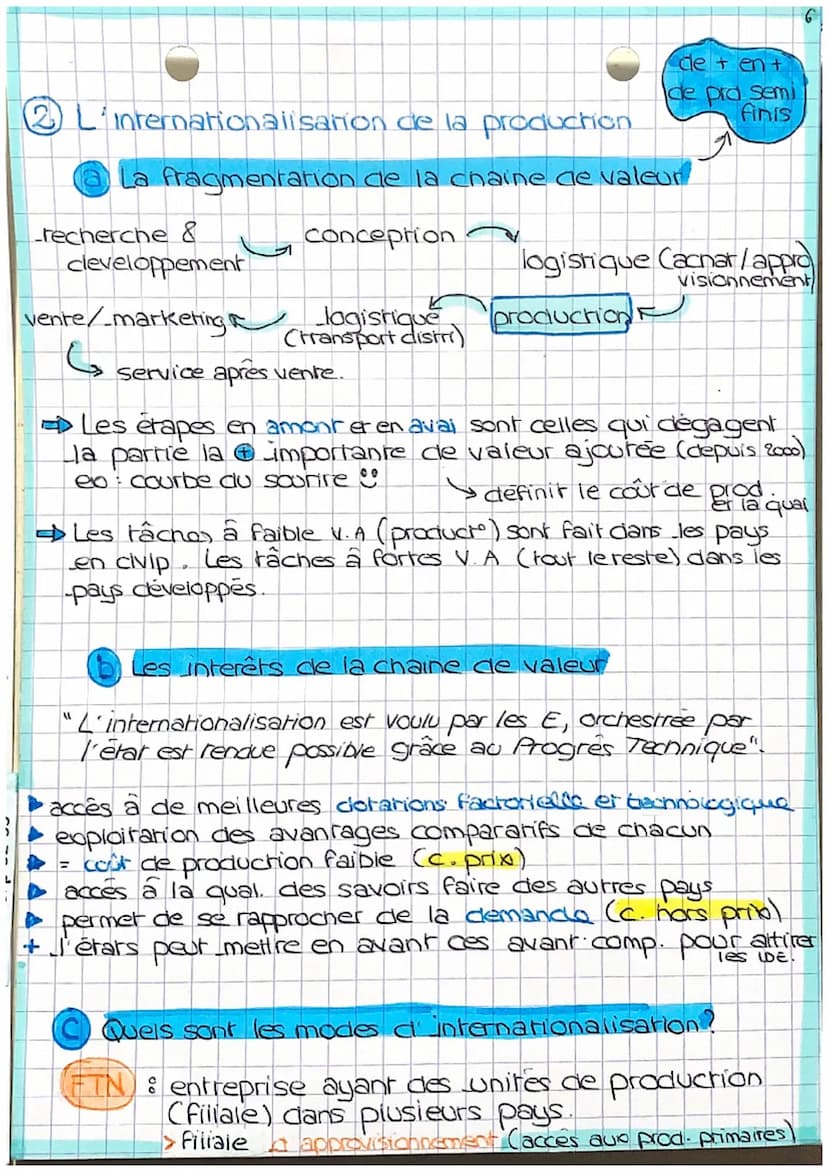 6
de + en +
de prd semi
finis
② L'internationalisation de la production
ⓐ La fragmentation de la chaine de valeur
recherche &
développement
conception
logistique (achat/appro
visionnement)
production
logistique
(transport distri)
vente/marketing
service après vente.
⇒ Les étapes en amont et en aval sont celles qui dégagent
la partie la ⊕ importante de valeur ajoutée (depuis 2000)
ex : courbe du sourire
↳ définir le coût de prod.
et la qual
⇒ Les tâches à faible V.A (product°) sont fait dans les pays
en dvlp. Les tâches à fortes V.A (tout le reste) dans les
pays développés.
ⓑ Les interêts de la chaine de valeur
"L'internationalisation est voulu par les E, orchestrée par
l'état est rendue possible grâce au Progrès Technique".
▶ accès à de meilleures dotations factorielle et technologique
▶ exploitation des avantages comparatifs de chacun
▶ = coût de production faible (c. prix)
▶ accès à la qual. des savoirs faire des autres pays
▶ permet de se rapprocher de la demande (c. hors prix)
+ l'états peut mettre en avant ces avant. comp. pour attirer
les IDE.
ⓒ Quels sont les modes d'internationalisation ?
FTN : entreprise ayant des unités de production
(filiale) dans plusieurs pays.
> Filiale approvisionnement (accès aux prod. primaires)